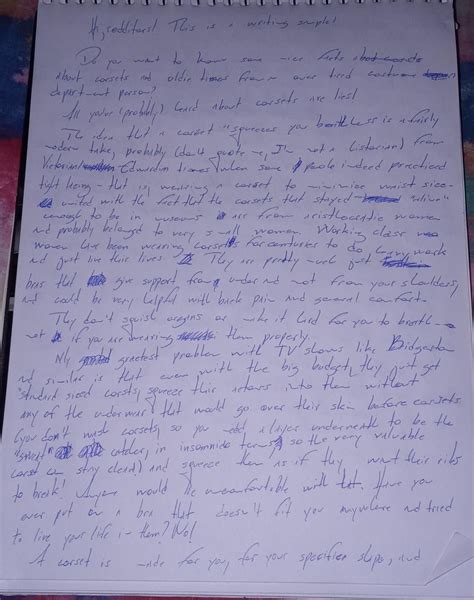 Hi, redditors! This is a writing sample!
Do you want to know some nice facts
about corsets and oldie times from an over tired costume
department person?
All you've (probably) heard about corsets are lies!
The idea that a corset "squeezes you breathless" is a fairly
modern take, probably (don't quote me, I'm not a historian) from
Victorian Edwardian times when some people indeed practiced
tight lacing - that is, wearing a corset to minimize waist size -
united with the fact that the corsets that stayed
enough to be in museums are from aristocratic women
and probably belonged to very small women. Working class
women have been wearing corsets for centuries to do heavy work
and just live their lives. They are pretty much just
bras that give support from under and not from your shoulders,
and could be very helpful with back pain and general comfort.
They don't squish organs or make it hard for you to breath -
not if you are wearing them properly.
My greatest problem with TV shows like Bridgerton
and similar is that even with the big budget, they just get
standard sized corsets, squeeze their actors into them without
any of the underwear that would go over their skin before corsets
(you don't wash corsets, so you add a layer underneath to be the
"sweat" catcher, in terms, so the very valuable
corset can stay clean) and squeeze them as if they want their ribs
to break! Anyone would be uncomfortable with that. Have you
ever put on a bra that doesn't fit you anywhere and tried
to live your life in them? No!
A corset is made for you, for your specific shape, and